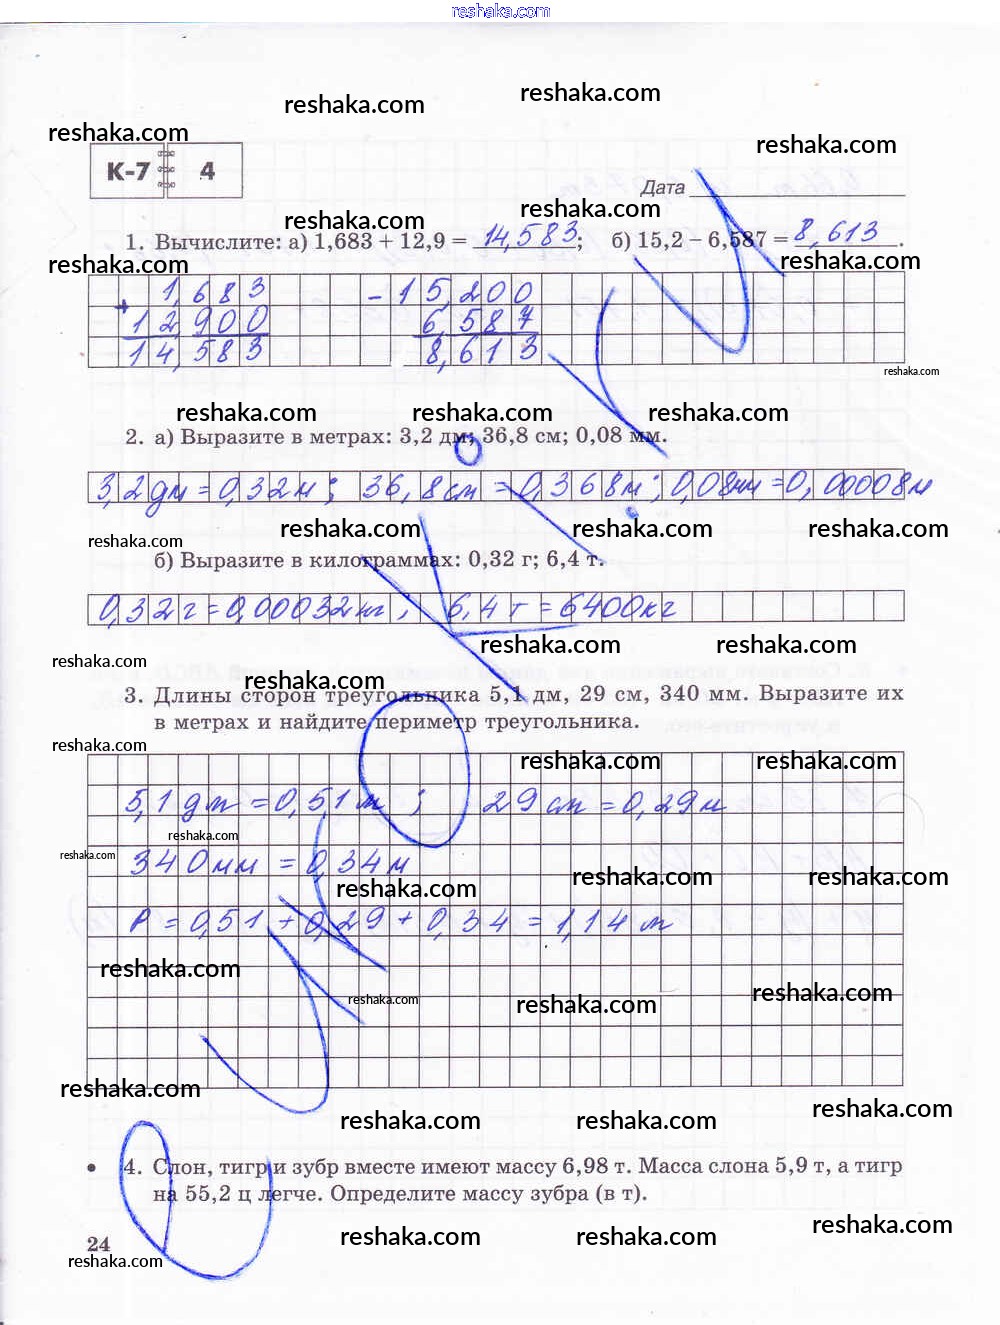 reshaka.com
reshaka.com
reshaka.com
reshaka.com
reshaka.com
К-7 4
Дата
reshaka.com
reshaka.com
1. Вычислите: а) 1,683 + 12,9 = 14,583; б) 15,2 − 6,587 = 8,613.
reshaka.com
reshaka.com
1,683 − 15,200
+ 12,900 6,587
14,583 8,613
reshaka.com
reshaka.com
reshaka.com
reshaka.com
2. а) Выразите в метрах: 3,2 дм; 36,8 см; 0,08 мм.
3,2дм = 0,32м; 36,8см = 0,368м; 0,08мм = 0,00008м
reshaka.com
reshaka.com
reshaka.com
reshaka.com
б) Выразите в килограммах: 0,32 г; 6,4 т.
0,32г = 0,00032кг; 6,4т = 6400кг
reshaka.com
reshaka.com
reshaka.com
reshaka.com
3. Длины сторон треугольника 5,1 дм, 29 см, 340 мм. Выразите их
в метрах и найдите периметр треугольника.
reshaka.com
reshaka.com
reshaka.com
5,1дм = 0,51м; 29см = 0,29м
reshaka.com
reshaka.com
340мм = 0,34м
reshaka.com
reshaka.com
reshaka.com
P = 0,51 + 0,29 + 0,34 = 1,14 м
reshaka.com
reshaka.com
reshaka.com
reshaka.com
reshaka.com
reshaka.com
reshaka.com
reshaka.com
4. Слон, тигр и зубр вместе имеют массу 6,98 т. Масса слона 5,9 т, а тигр
на 55,2 ц легче. Определите массу зубра (в т).
reshaka.com
reshaka.com
reshaka.com
24
reshaka.com